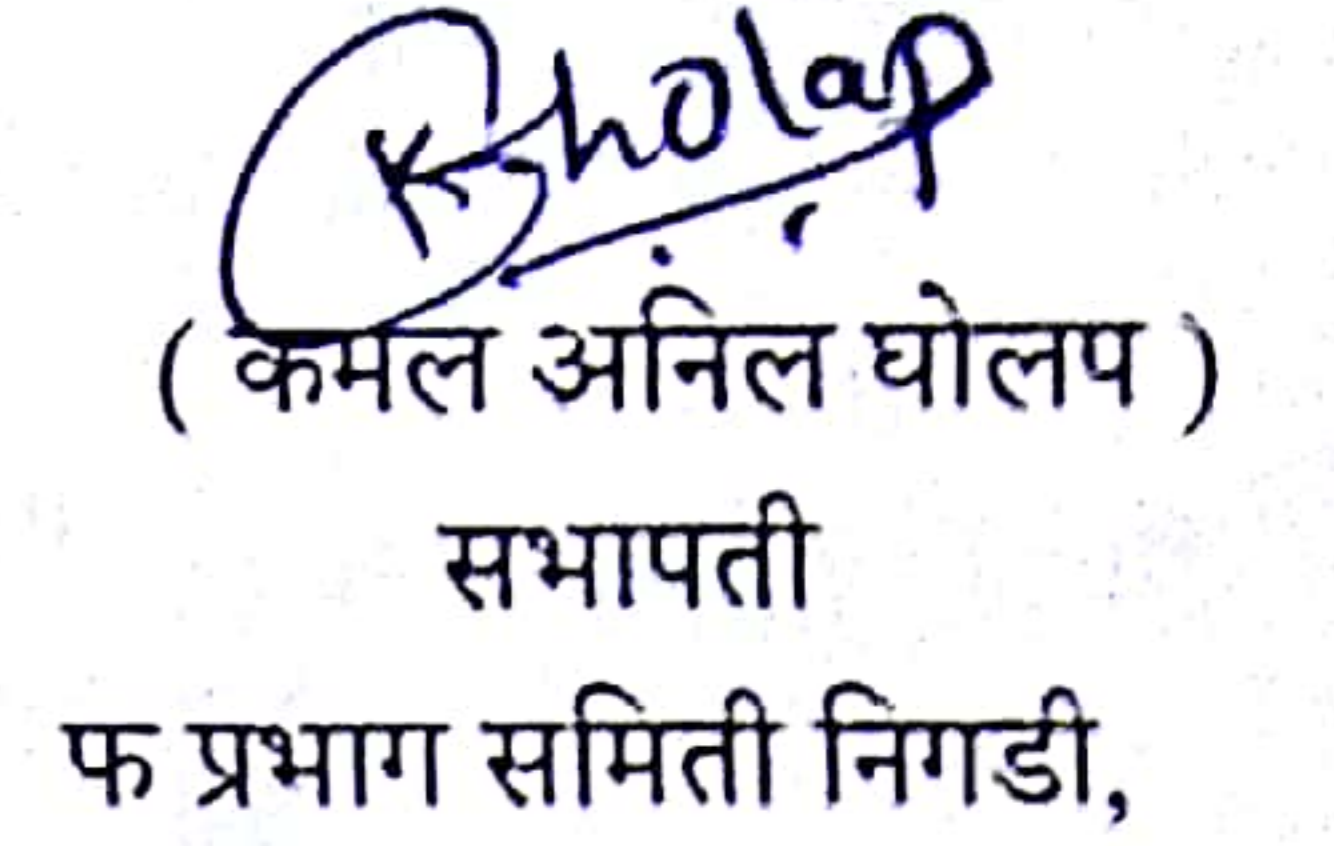 KGholap
( कमल अनिल घोलप )
सभापती
फ प्रभाग समिती निगडी,